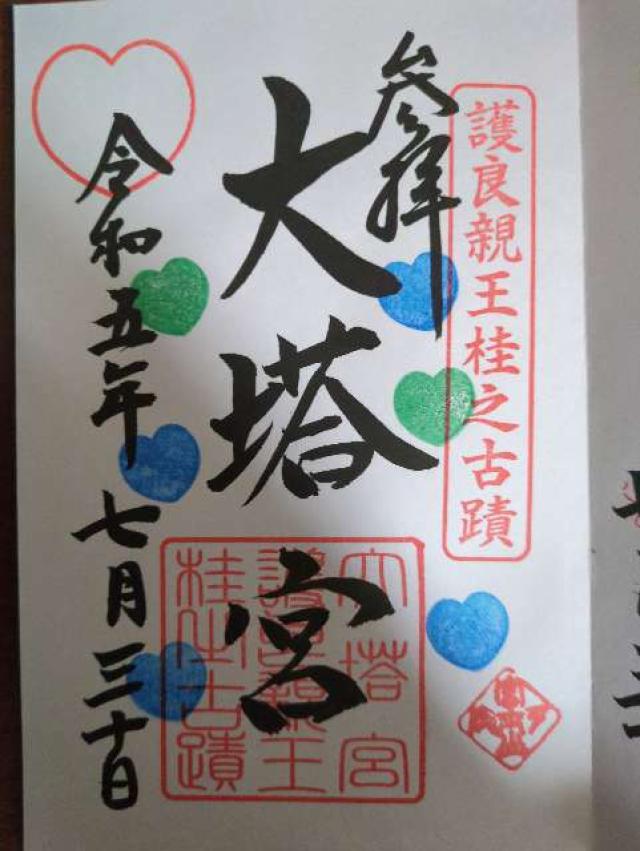 護良親王桂之古蹟
参拝
大塔宮
大塔宮
護良親王
桂之古蹟
令和五年七月三十日